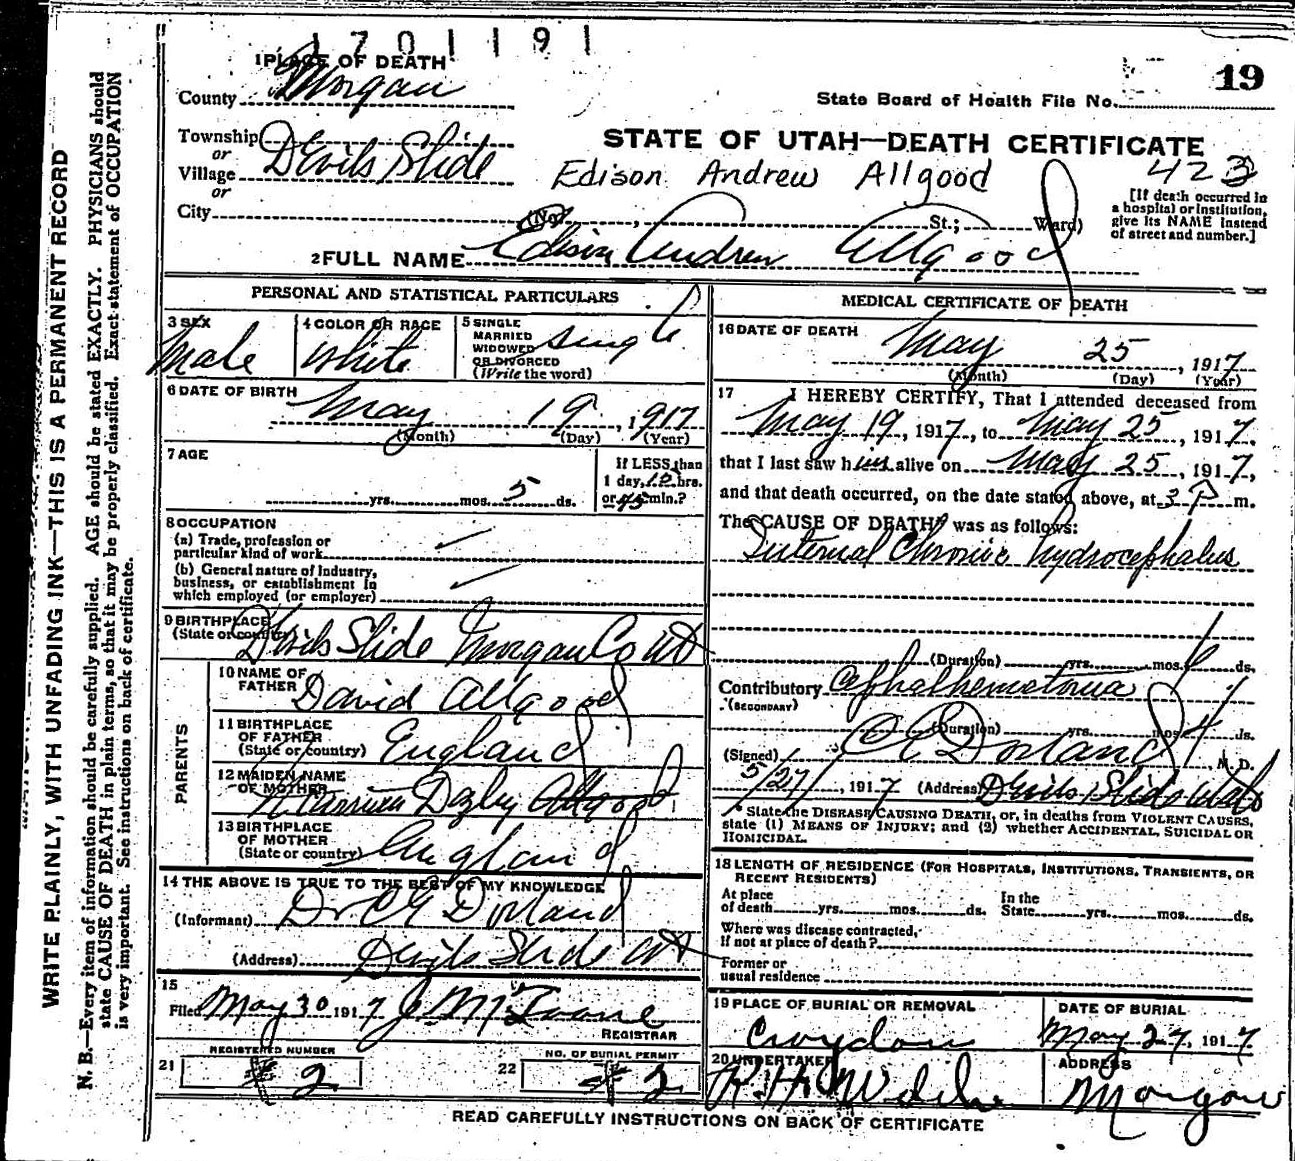 1701191
1 PLACE OF DEATH
19
County Morgan
State Board of Health File No.
Township
or
Village Devils Slide
or
City
STATE OF UTAH—DEATH CERTIFICATE
Edison Andrew Allgood 423
[If death occurred in
a hospital or institution,
give its NAME instead
of street and number.]
(No. , St.; Ward)
2 FULL NAME Edison Andrew Allgood
PERSONAL AND STATISTICAL PARTICULARS
3 SEX
Male
4 COLOR OR RACE
White
5 SINGLE
MARRIED
WIDOWED
OR DIVORCED
(Write the word)
Single
6 DATE OF BIRTH
May 19, 1917
(Month) (Day) (Year)
7 AGE
yrs. mos. 5 ds.
If LESS than
1 day, 12 hrs.
or 45 min.?
8 OCCUPATION
(a) Trade, profession or
particular kind of work
(b) General nature of industry,
business, or establishment in
which employed (or employer)
9 BIRTHPLACE
(State or country) Devils Slide Morgan Co Ut
PARENTS
10 NAME OF
FATHER David Allgood
11 BIRTHPLACE
OF FATHER
(State or country) England
12 MAIDEN NAME
OF MOTHER Allgood
13 BIRTHPLACE
OF MOTHER
(State or country) England
14 THE ABOVE IS TRUE TO THE BEST OF MY KNOWLEDGE
(Informant) Dr C E Dorland
(Address) Devils Slide Ut
15
Filed May 30 1917
REGISTRAR
21
REGISTERED NUMBER
# 2
22
NO. OF BURIAL PERMIT
# 2
MEDICAL CERTIFICATE OF DEATH
16 DATE OF DEATH
May 25, 1917
(Month) (Day) (Year)
17 I HEREBY CERTIFY, That I attended deceased from
May 19, 1917, to May 25, 1917,
that I last saw him alive on May 25, 1917,
and that death occurred, on the date stated above, at 3 P m.
The CAUSE OF DEATH* was as follows:
Internal Chronic hydrocephalus
(Duration) yrs. mos. ds.
Contributory Cephalhematoma
(SECONDARY)
(Duration) yrs. mos. ds.
(Signed) C E Dorland, M. D.
5/27/, 1917 (Address) Devils Slide Utah
* State the DISEASE CAUSING DEATH, or, in deaths from VIOLENT CAUSES,
state (1) MEANS OF INJURY; and (2) whether ACCIDENTAL, SUICIDAL OR
HOMICIDAL.
18 LENGTH OF RESIDENCE (FOR HOSPITALS, INSTITUTIONS, TRANSIENTS, OR
RECENT RESIDENTS)
At place
of death yrs. mos. ds.
In the
State yrs. mos. ds.
Where was disease contracted,
if not at place of death?
Former or
usual residence
19 PLACE OF BURIAL OR REMOVAL
Croydon
DATE OF BURIAL
May 27, 1917
20 UNDERTAKER
ADDRESS
Morgan
READ CAREFULLY INSTRUCTIONS ON BACK OF CERTIFICATE
WRITE PLAINLY, WITH UNFADING INK—THIS IS A PERMANENT RECORD
N. B.—Every item of information should be carefully supplied. AGE should be stated EXACTLY. PHYSICIANS should
state CAUSE OF DEATH in plain terms, so that it may be properly classified. Exact statement of OCCUPATION
is very important. See instructions on back of certificate.